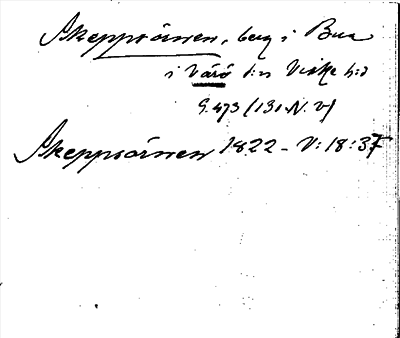 Skeppsörnen, berg i Bua
i Värö s:n Viske h:d
G. 473 (131 N. V)
Skeppsörnen 1822 - V: 18: 37